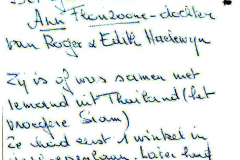 Ann Franzoone-dochter
van Roger & Edith Haelewyn
Zij is of was samen met
iemand uit Thailand (het
vroegere Siam)
Ze had eerst 1 winkel in
later had